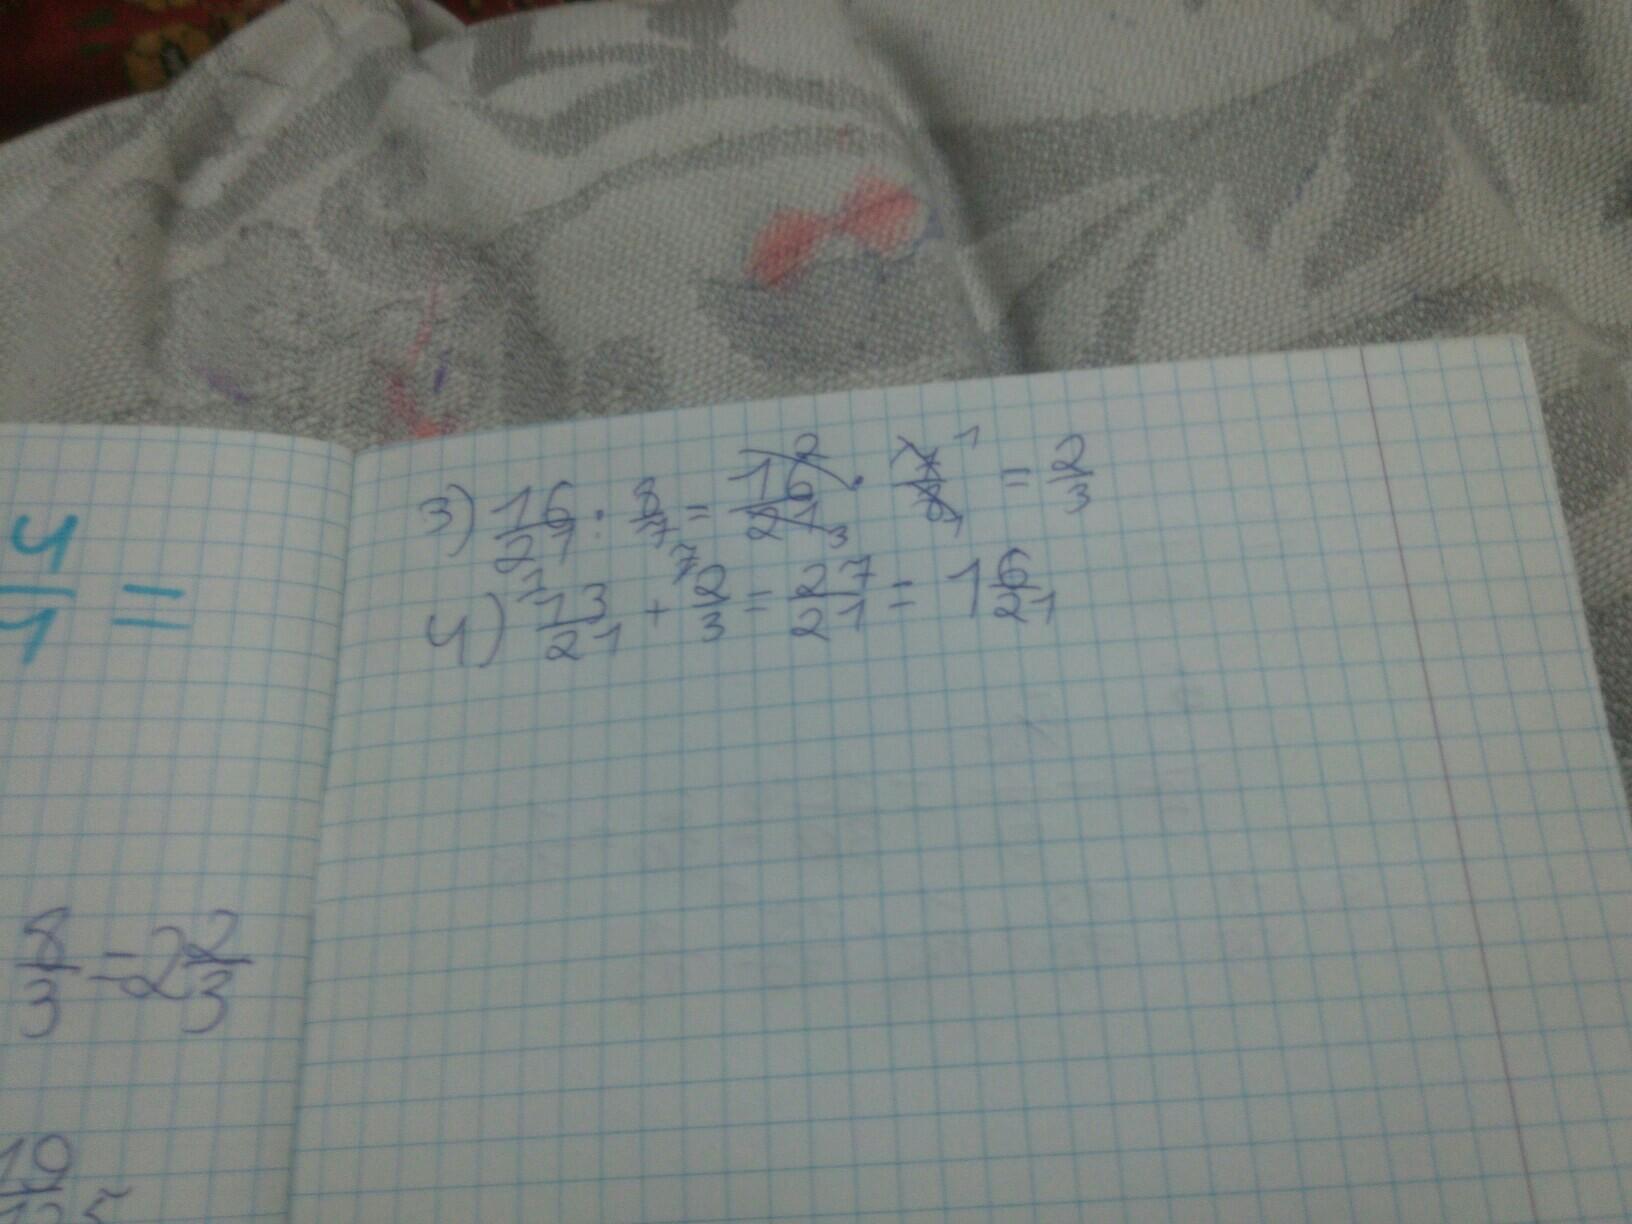 4/4 =
8/3 = 2 2/3
19
3) 16/21 : 8/7 = 16 2/21 3 · 7 1/8 1 = 2/3
4) 1 13/21 + 7 2/3 = 27/21 = 1 6/21